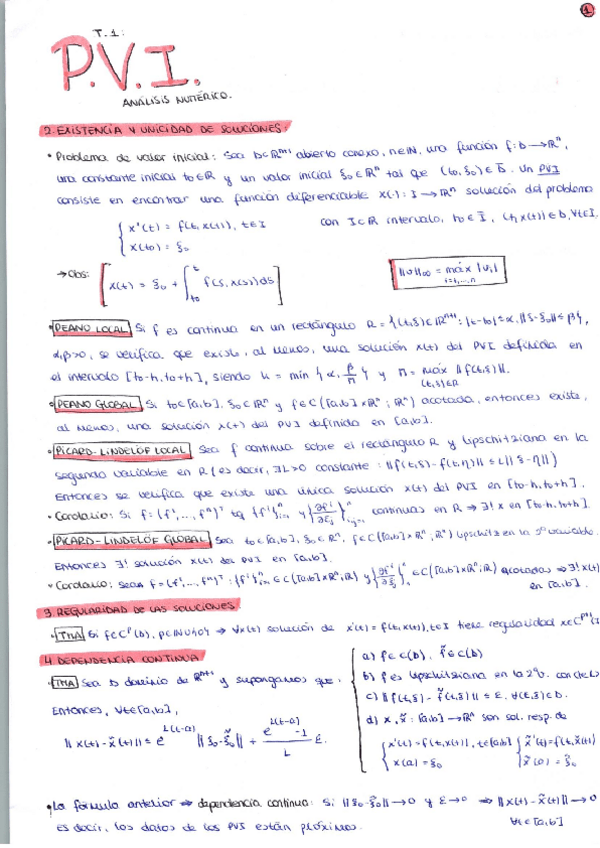 1
T.1:
P.V.I.
ANÁLISIS NUMÉRICO.
2. EXISTENCIA Y UNICIDAD DE SOLUCIONES:
• Problema de valor inicial: Sea D⊂ℝⁿ⁺¹ abierto conexo, n∈ℕ, una función f: D→ℝⁿ,
una constante inicial t₀∈ℝ y un valor inicial ξ₀∈ℝⁿ tal que (t₀, ξ₀)∈D̄. Un PVI
consiste en encontrar una función diferenciable x(·): I→ℝⁿ solución del problema
{ x'(t) = f(t, x(t)), t∈I con I⊂ℝ intervalo, t₀∈Ī, (t, x(t))∈D, ∀t∈I.
x(t₀) = ξ₀
→Obs: [ x(t) = ξ₀ + ∫ₜ₀ᵗ f(s, x(s)) ds ] ||v||∞ = máx |vᵢ| i=1,...,n
• PEANO LOCAL Si f es continua en un rectángulo R = {(t,ξ)∈ℝⁿ⁺¹: |t-t₀|≤α, ||ξ-ξ₀||≤β},
α,β>0, se verifica que existe, al menos, una solución x(t) del PVI definida en
el intervalo [t₀-h, t₀+h], siendo h = min {α, β/M} y M = máx ||f(t,ξ)||. (t,ξ)∈R
• PEANO GLOBAL Si t₀∈[a,b], ξ₀∈ℝⁿ y f∈C([a,b]×ℝⁿ; ℝⁿ) acotada, entonces existe,
al menos, una solución x(t) del PVI definida en [a,b].
• PICARD-LINDELÖF LOCAL Sea f continua sobre el rectángulo R y Lipschitziana en la
segunda variable en R (es decir, ∃L>0 constante: ||f(t,ξ) - f(t,η)|| ≤ L||ξ-η||)
Entonces se verifica que existe una única solución x(t) del PVI en [t₀-h, t₀+h].
• Corolario: Si f = (f¹,...,fⁿ)ᵀ tq {fⁱ}ⁿᵢ₌₁ y {∂fⁱ/∂ξⱼ}ⁿᵢ,ⱼ₌₁ continuas en R ⇒ ∃! x en [t₀-h, t₀+h].
• PICARD-LINDELÖF GLOBAL Sea t₀∈[a,b], ξ₀∈ℝⁿ, f∈C([a,b]×ℝⁿ; ℝⁿ) Lipschitz en la 2ª variable.
Entonces ∃! solución x(t) del PVI en [a,b].
• Corolario: Sean f = (f¹,...,fⁿ)ᵀ: {fⁱ}ⁿᵢ₌₁ ∈C([a,b]×ℝⁿ; ℝ) y {∂fⁱ/∂ξⱼ}ⁿ ∈C([a,b]×ℝⁿ; ℝ) acotadas ⇒ ∃! x(t)
en [a,b].
3. REGULARIDAD DE LAS SOLUCIONES
• TMA Si f∈Cᵖ(D), p∈ℕ∪{0} → ∀x(t) solución de x'(t) = f(t, x(t)), t∈I tiene regularidad x∈Cᵖ⁺¹(I
4. DEPENDENCIA CONTINUA
• TMA Sea D dominio de ℝⁿ⁺¹ y supongamos que:
a) f∈C(D), f̃∈C(D)
b) f es Lipschitziana en la 2ªv. con cte L
c) ||f(t,ξ) - f̃(t,ξ)|| ≤ ε, ∀(t,ξ)∈D.
d) x, x̃: [a,b]→ℝⁿ son sol. resp. de
{ x'(t) = f(t, x(t)), t∈[a,b] { x̃'(t) = f̃(t, x̃(t))
x(a) = ξ₀ x̃(a) = ξ̃₀
Entonces, ∀t∈[a,b],
||x(t) - x̃(t)|| ≤ e^{L(t-a)} ||ξ₀-ξ̃₀|| + (e^{L(t-a)} - 1)/L ε.
• La fórmula anterior ⇒ dependencia continua: Si ||ξ₀-ξ̃₀||→0 y ε→0 ⇒ ||x(t) - x̃(t)||→0
es decir, los datos de los PVI están próximos. ∀t∈[a,b]